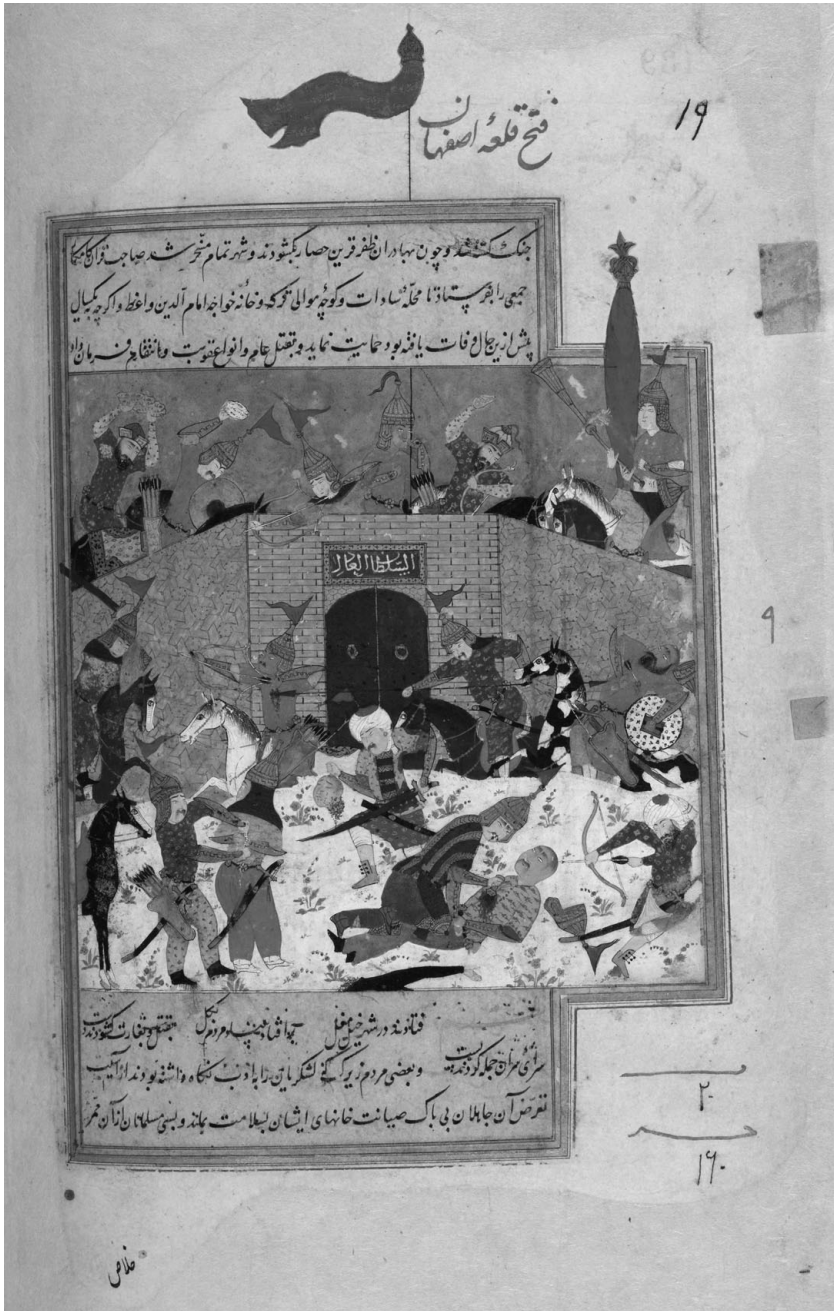 فتح قلعهٔ اصفهان
۱۹
جنگ و چون بهادران ظفر قرین حصار بگشودند و شهر تمام مسخّر شد صاحب قران
جمعی را بفرستاد تا محلّه سادات و کوچهٔ موالی ترکه و خانه خواجه امام الدین واعظ و اگرچه بیکسال
پیش ازین حال وفات یافته بود حمایت نماید و بقتل عام و انواع عقوبت و انتقام فرمان داد
السلطان العادل
۹
فتادند در شهر خیل مغل
بقتل و بغارت گشودند دست
و بعضی مردم زیرک که لشکریان را نگاه داشته بودند از آسیب
تعرّض آن جاهلان بی باک صیانت خانهای ایشان بسلامت بماند و بسی مسلمانان از آن
۲۰
۱۶۰
خلاص